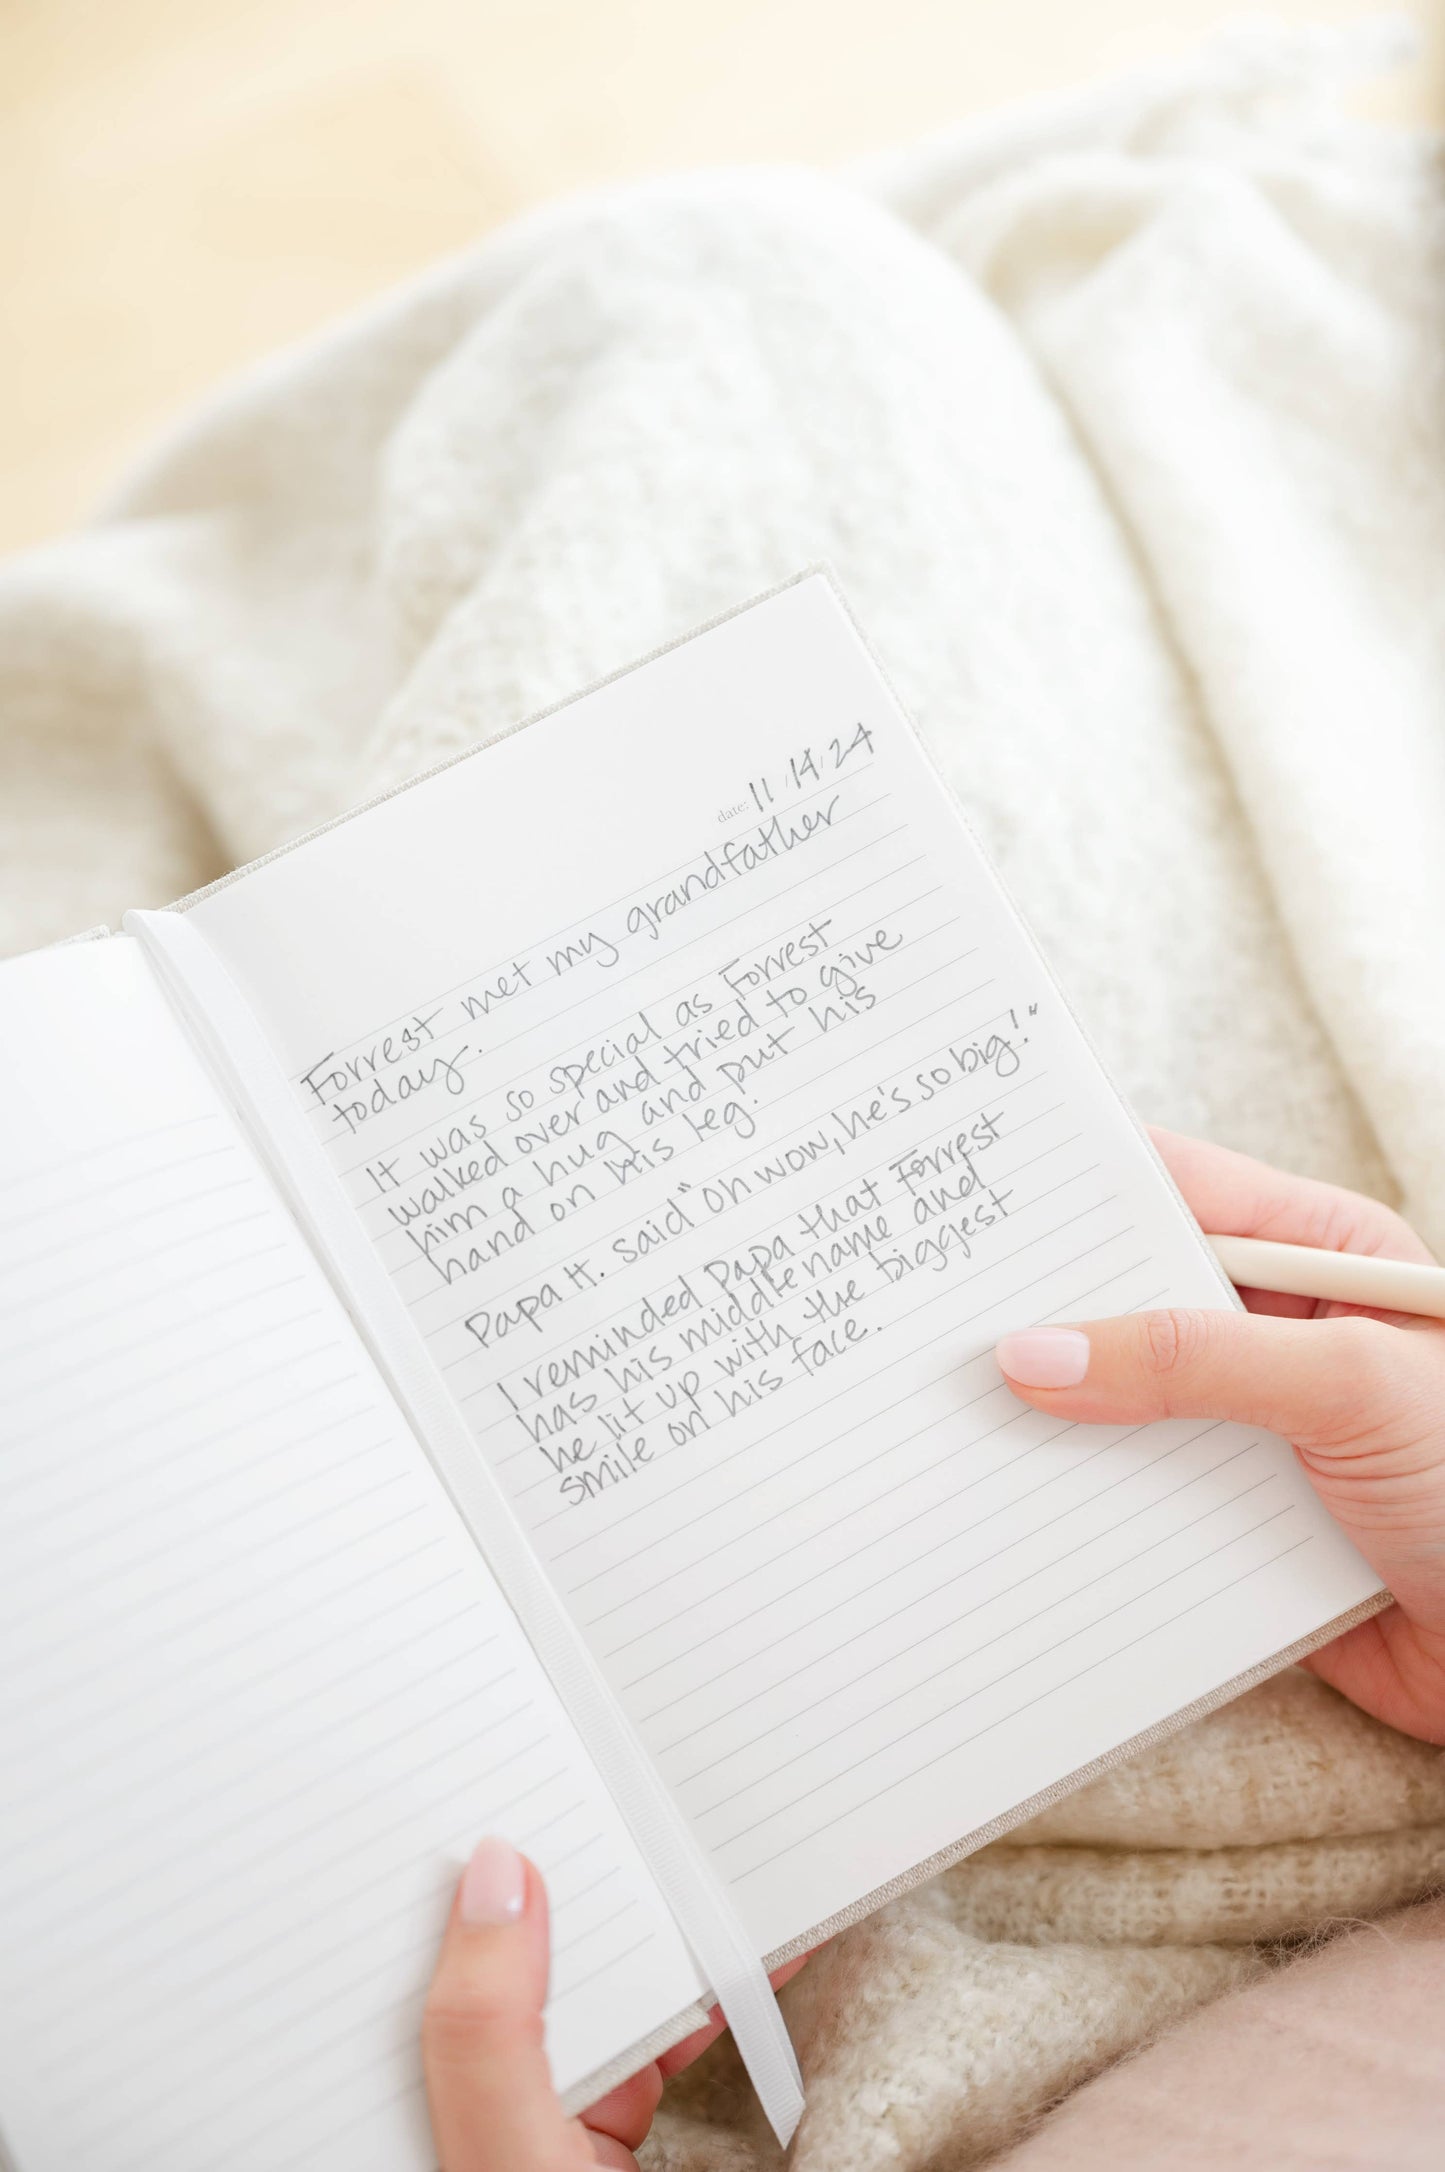 date: 11/14/24
Forrest met my grandfather
today.
It was so special as Forrest
walked over and tried to give
him a hug and put his
hand on his leg.
Papa H. said "oh wow, he's so big!"
I reminded Papa that Forrest
has his middle name and
he lit up with the biggest
smile on his face.